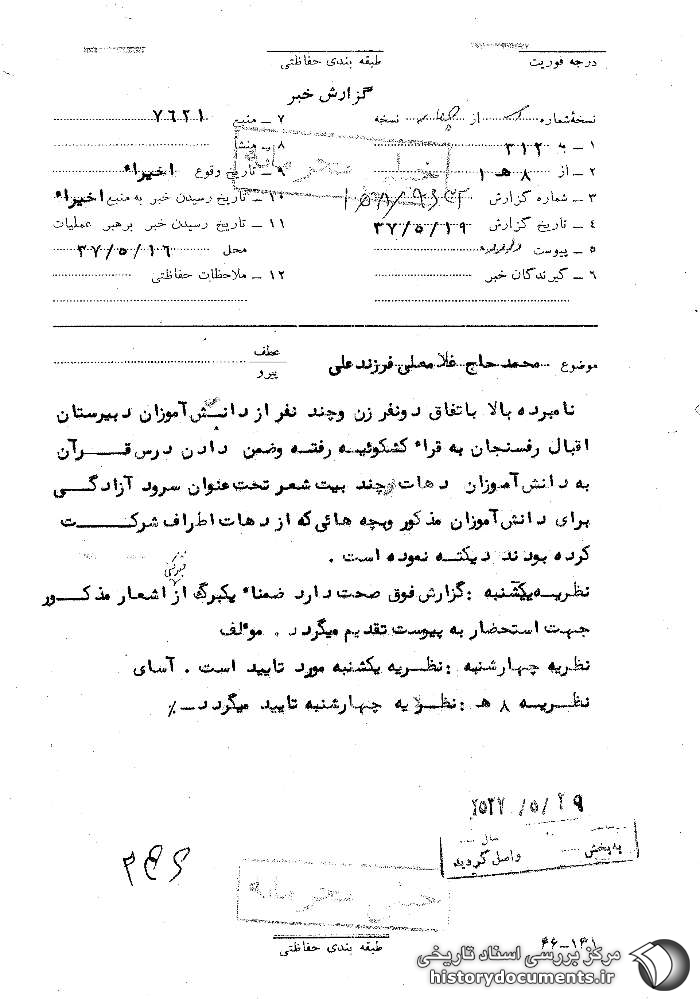 درجه فوریت
طبقه بندی حفاظتی
گزارش خبر
نسخهٔ شماره از چهار نسخه
۱ - به ۳۱۲
۲ - از ۸ هـ ۱
۳ - شماره گزارش
۴ - تاریخ گزارش ۳۷/۵/۱۹
۵ - پیوست
۶ - گیرندگان خبر
۷ - منبع ۷۶۲۱
۸ - منشأ
۹ - تاریخ وقوع اخیراء
۱۰ - تاریخ رسیدن خبر به منبع اخیراء
۱۱ - تاریخ رسیدن خبر برهبر عملیات
محل ۳۷/۵/۱۶
۱۲ - ملاحظات حفاظتی
خیلی محرمانه
موضوع محمد حاج غلامعلی فرزند علی
عطف
پیرو
نامبرده بالا باتفاق دونفر زن وچند نفر از دانش آموزان دبیرستان
اقبال رفسنجان به قراء کشکوئیه رفته وضمن دادن درس قرآن
به دانش آموزان دهات چند بیت شعر تحت عنوان سرود آزادگی
برای دانش آموزان مذکور وبچه هائی که از دهات اطراف شرکت
کرده بودند دیکته نموده است .
نظریه یکشنبه : گزارش فوق صحت دارد ضمناء یکبرگ از اشعار مذکور
جهت استحضار به پیوست تقدیم میگردد . مؤلف
نظریه چهارشنبه : نظریه یکشنبه مورد تایید است . آسای
نظریه ۸ هـ : نظریه چهارشنبه تایید میگردد -٪
۲۵۳۷/۵/۲۹
سال
به بخش واصل گردید
خیلی محرمانه
طبقه بندی حفاظتی
۴۶-۱۳۱
مرکز بررسی اسناد تاریخی
historydocuments.ir